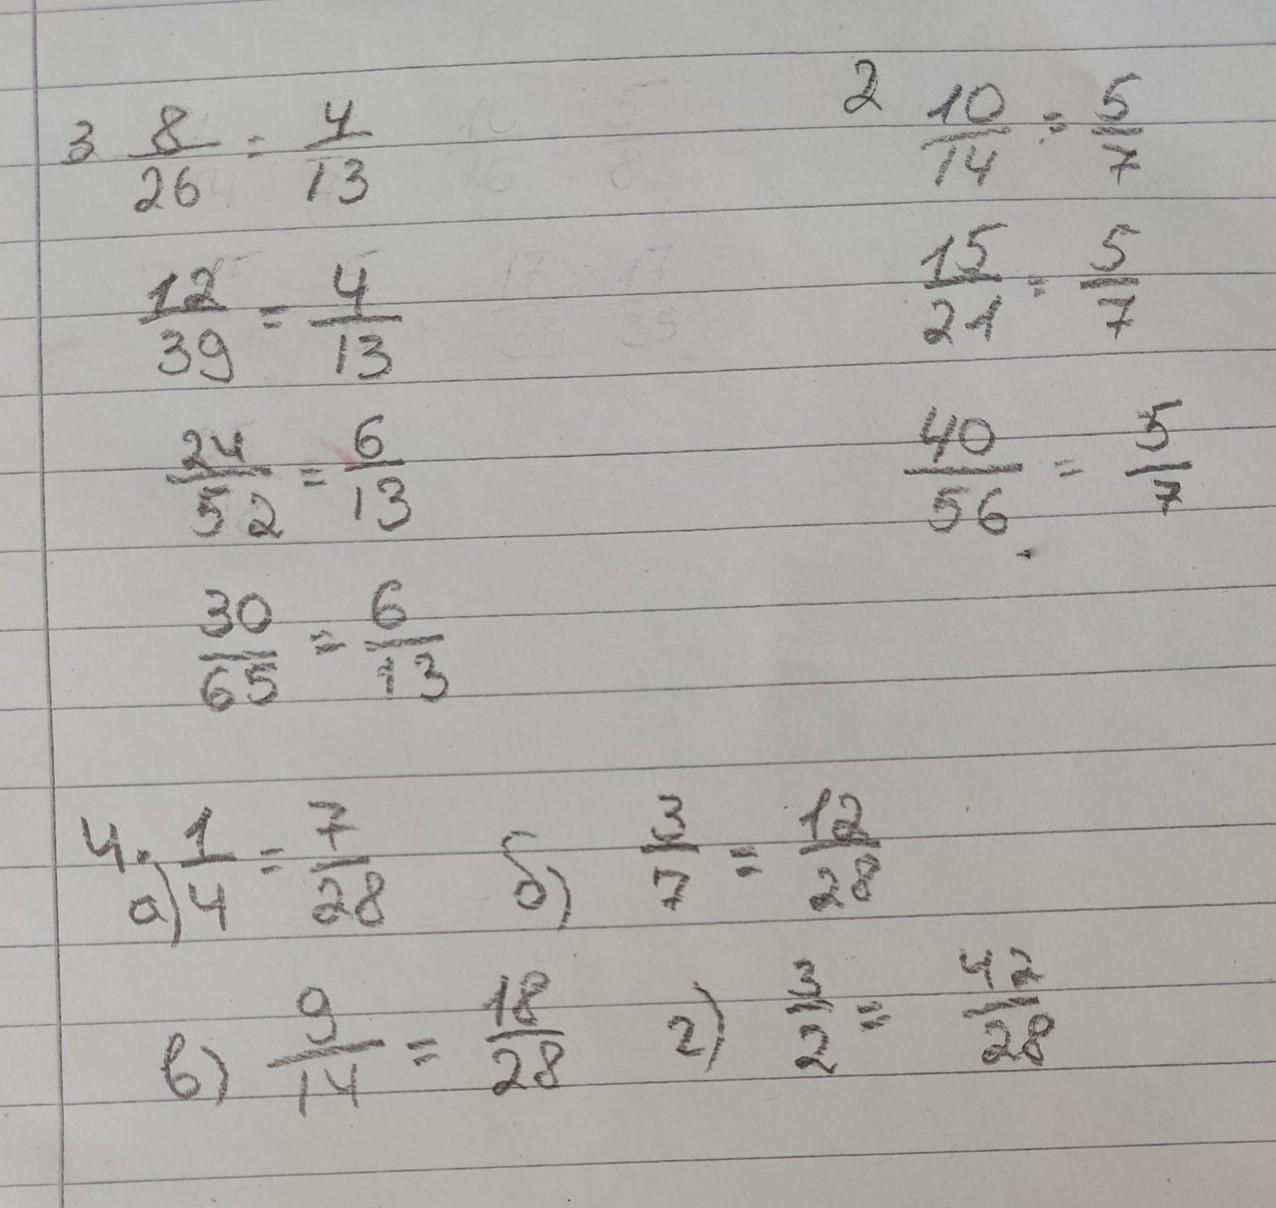 3 8/26 = 4/13
12/39 = 4/13
24/52 = 6/13
30/65 = 6/13
2 10/14 = 5/7
15/21 = 5/7
40/56 = 5/7
4. а) 1/4 = 7/28 б) 3/7 = 12/28
в) 9/14 = 18/28 г) 3/2 = 42/28